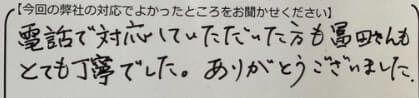 【今回の弊社の対応でよかったところをお聞かせください】
電話で対応していただいた方も冨田さんも
とても丁寧でした。ありがとうございました.